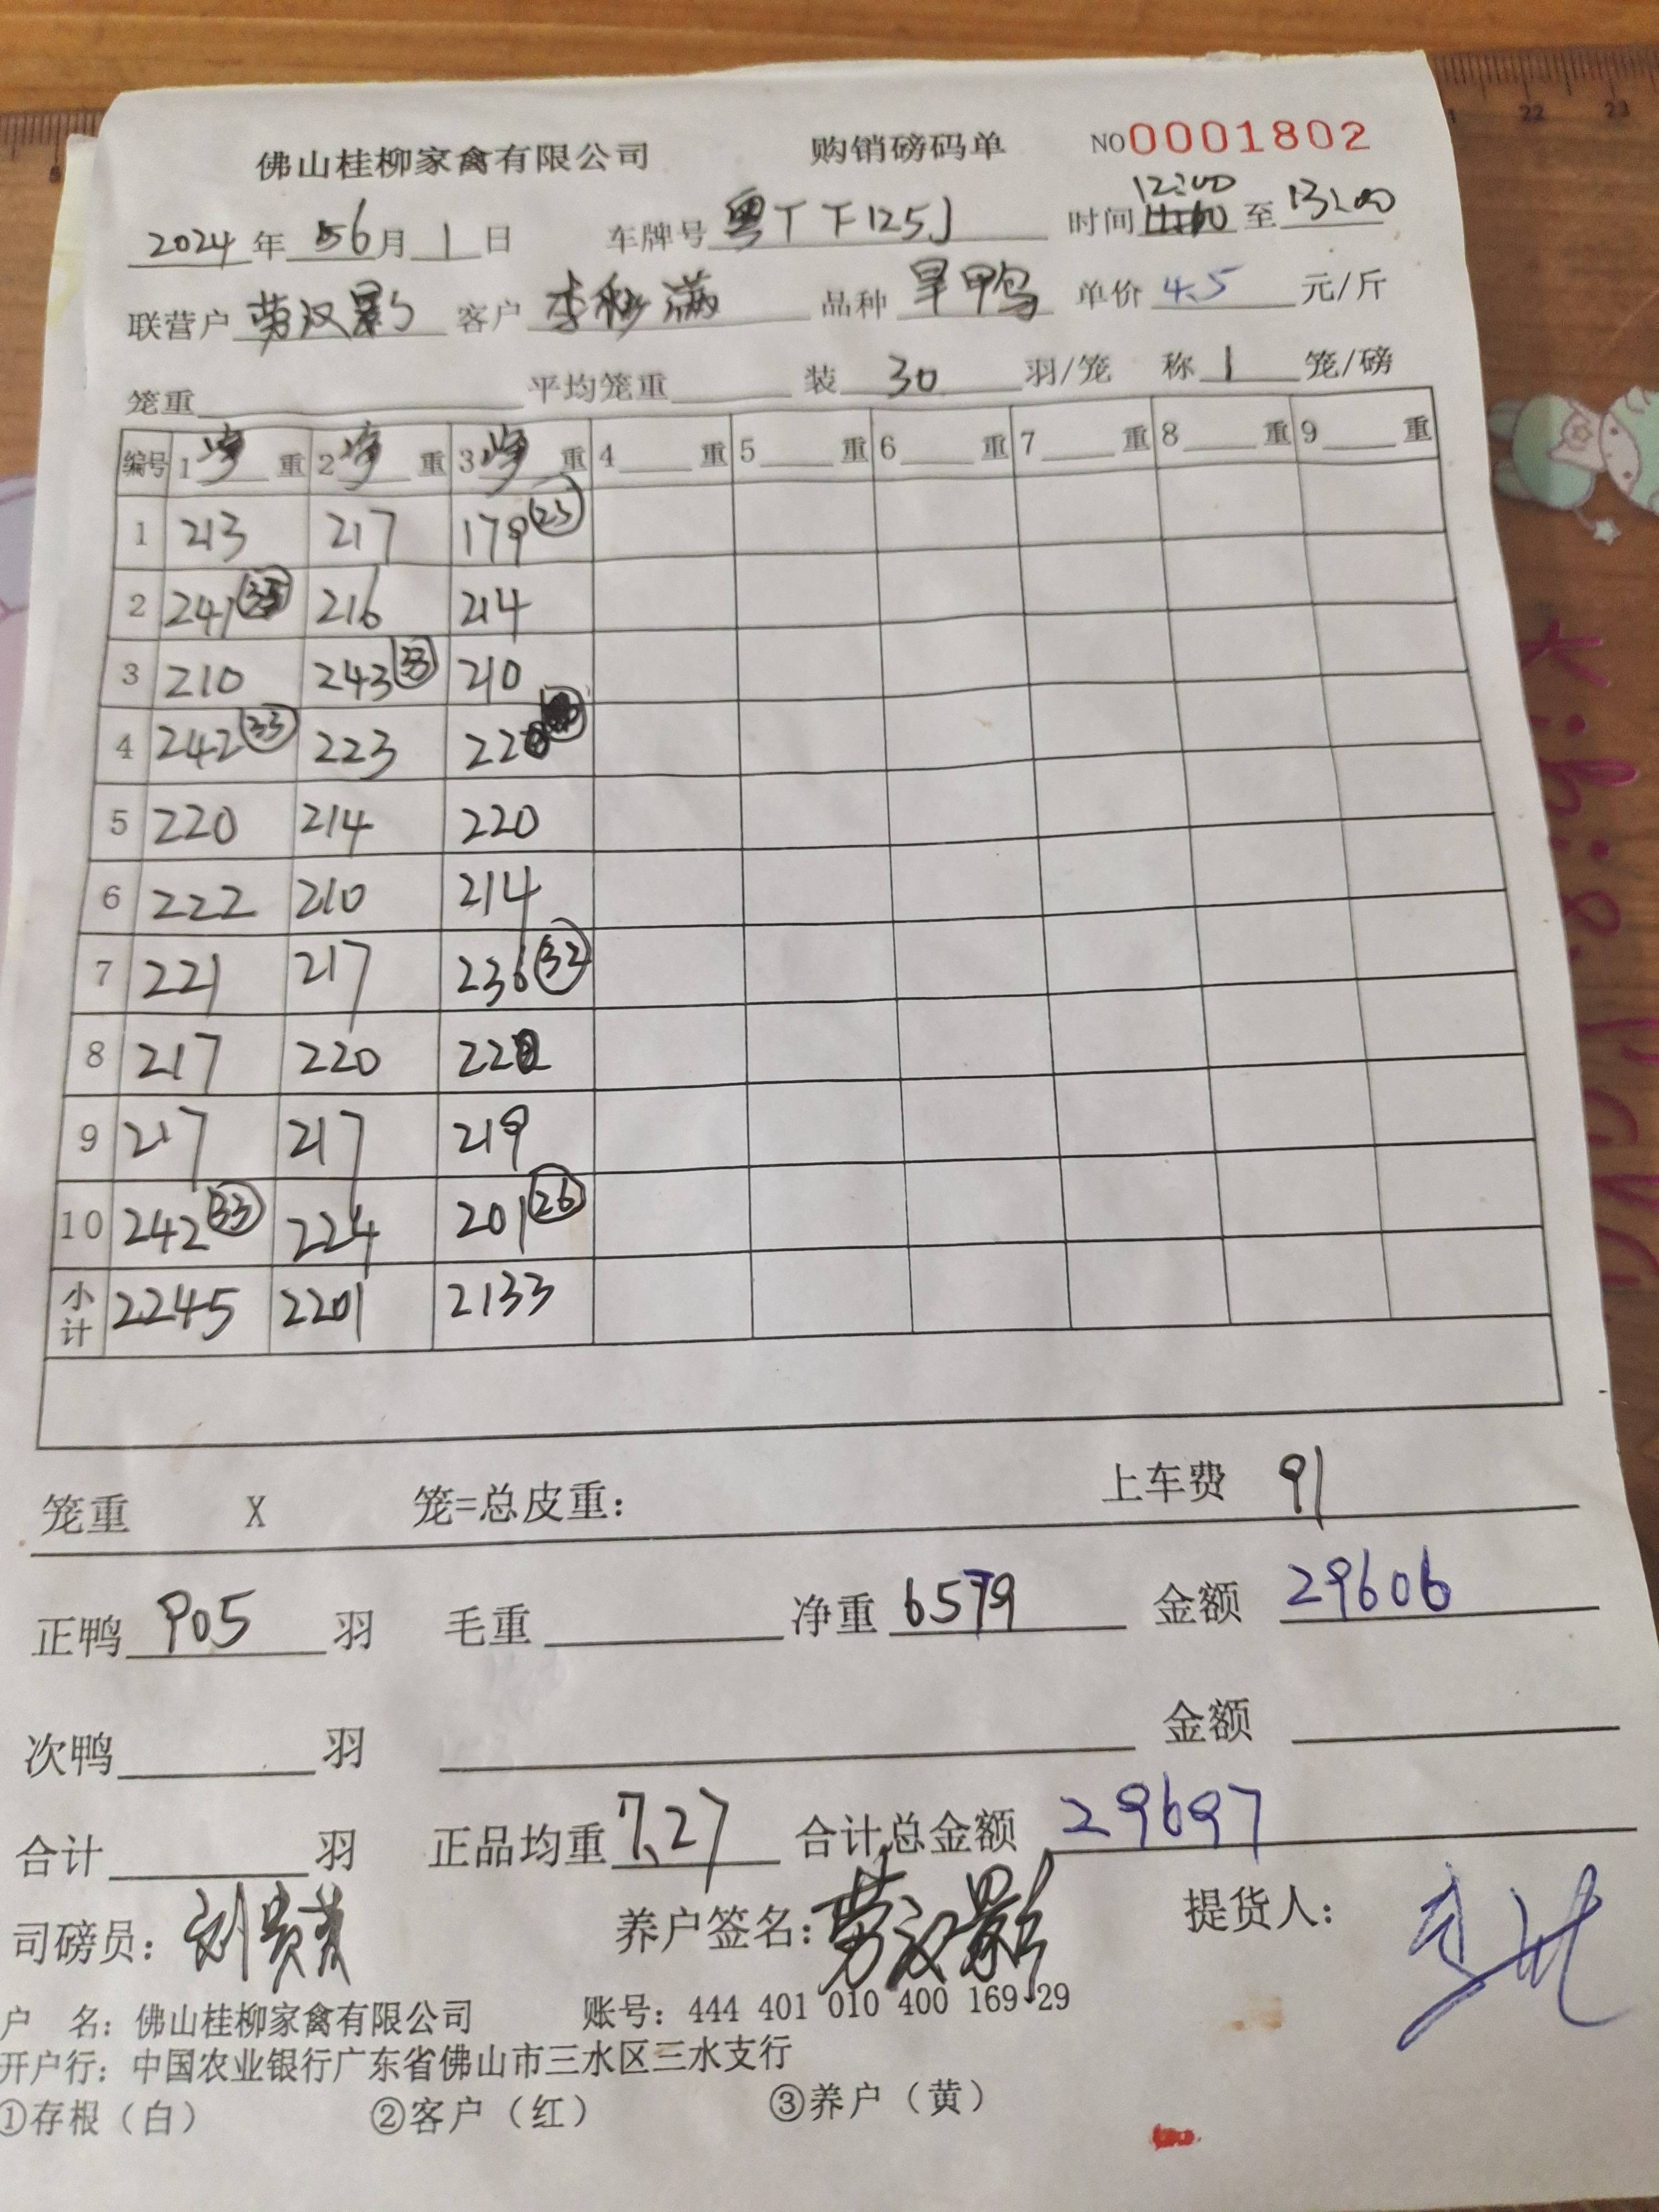 佛山桂柳家禽有限公司 购销磅码单 NO0001802
12:00
2024年 6月1日 车牌号 粤TF125J 时间 至13:00
联营户 劳汉影 客户 李 满 品种 旱鸭 单价 4.5 元/斤
笼重 平均笼重 装 30 羽/笼 称 1 笼/磅
编号 1净重 2净重 3净重 4 重 5 重 6 重 7 重 8 重 9 重
1 213 217 179 (25)
2 241 216 214
3 210 243 (33) 210
4 242 (33) 223 220
5 220 214 220
6 222 210 214
7 221 217 236 (32)
8 217 220 220
9 217 217 219
10 242 (33) 224 201 (26)
小计 2245 2201 2133
笼重 X 笼=总皮重: 上车费 91
正鸭 905 羽 毛重 净重 6579 金额 29606
次鸭 羽 金额
合计 羽 正品均重 7.27 合计总金额 29697
司磅员: 刘贵 养户签名: 劳汉影 提货人:
户 名: 佛山桂柳家禽有限公司 账号: 444 401 010 400 169 29
开户行: 中国农业银行广东省佛山市三水区三水支行
①存根(白) ②客户(红) ③养户(黄)